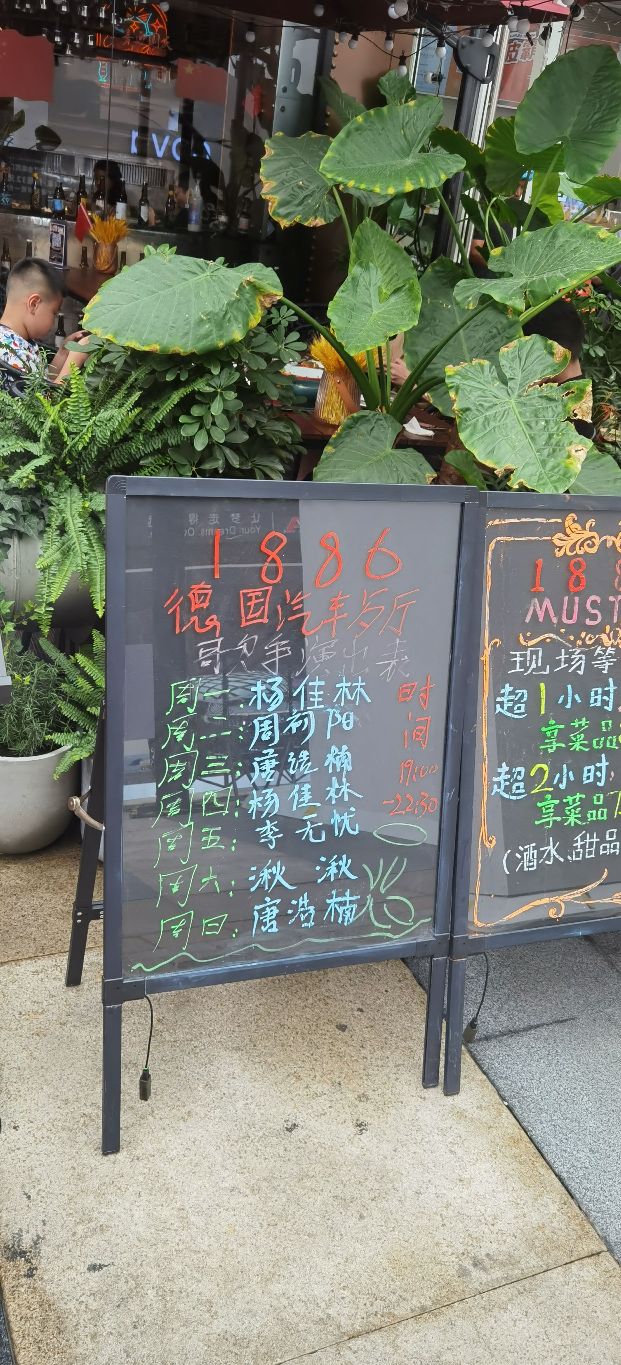 1886
德国汽车餐厅
歌手演出表
周一:杨佳林
周二:周祠阳
周三:唐浩楠
周四:杨佳林
周五:李无忧
周六:湫湫
周日:唐浩楠
时间
19:00
-22:30
188
MUST
现场等
超1小时
享菜品
超2小时
享菜品
(酒水、甜品